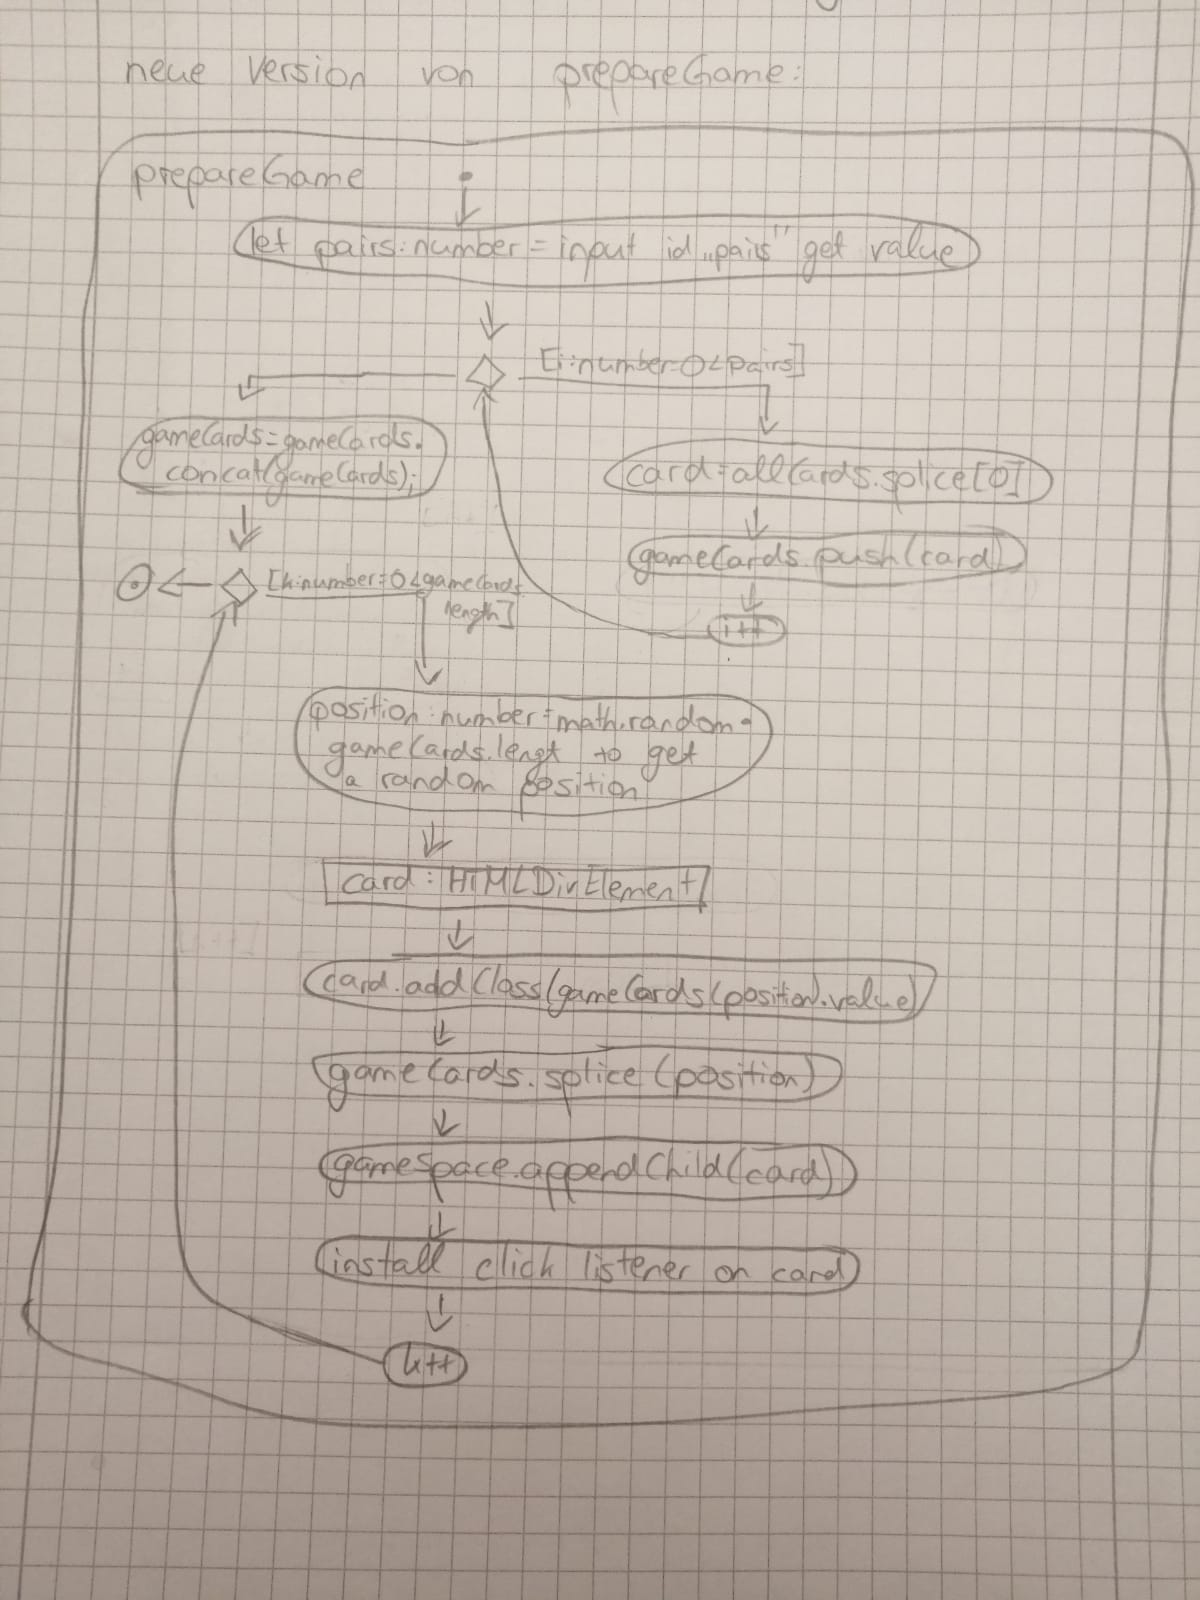 neue Version von prepareGame:
prepareGame
let pairs:number = input id „pairs" get value
[i:number=0<pairs]
gameCards=gameCards.
concat(gameCards);
card=allCards.splice[0]
gameCards.push(card)
i++
[k:number=0<gameCards.
length]
position:number=math.random·
gameCards.lengt to get
a random position
card: HTMLDivElement
card.addClass(gameCards(position).value)
gameCards.splice(position)
gamespace.appendChild(card)
install click listener on card
k++